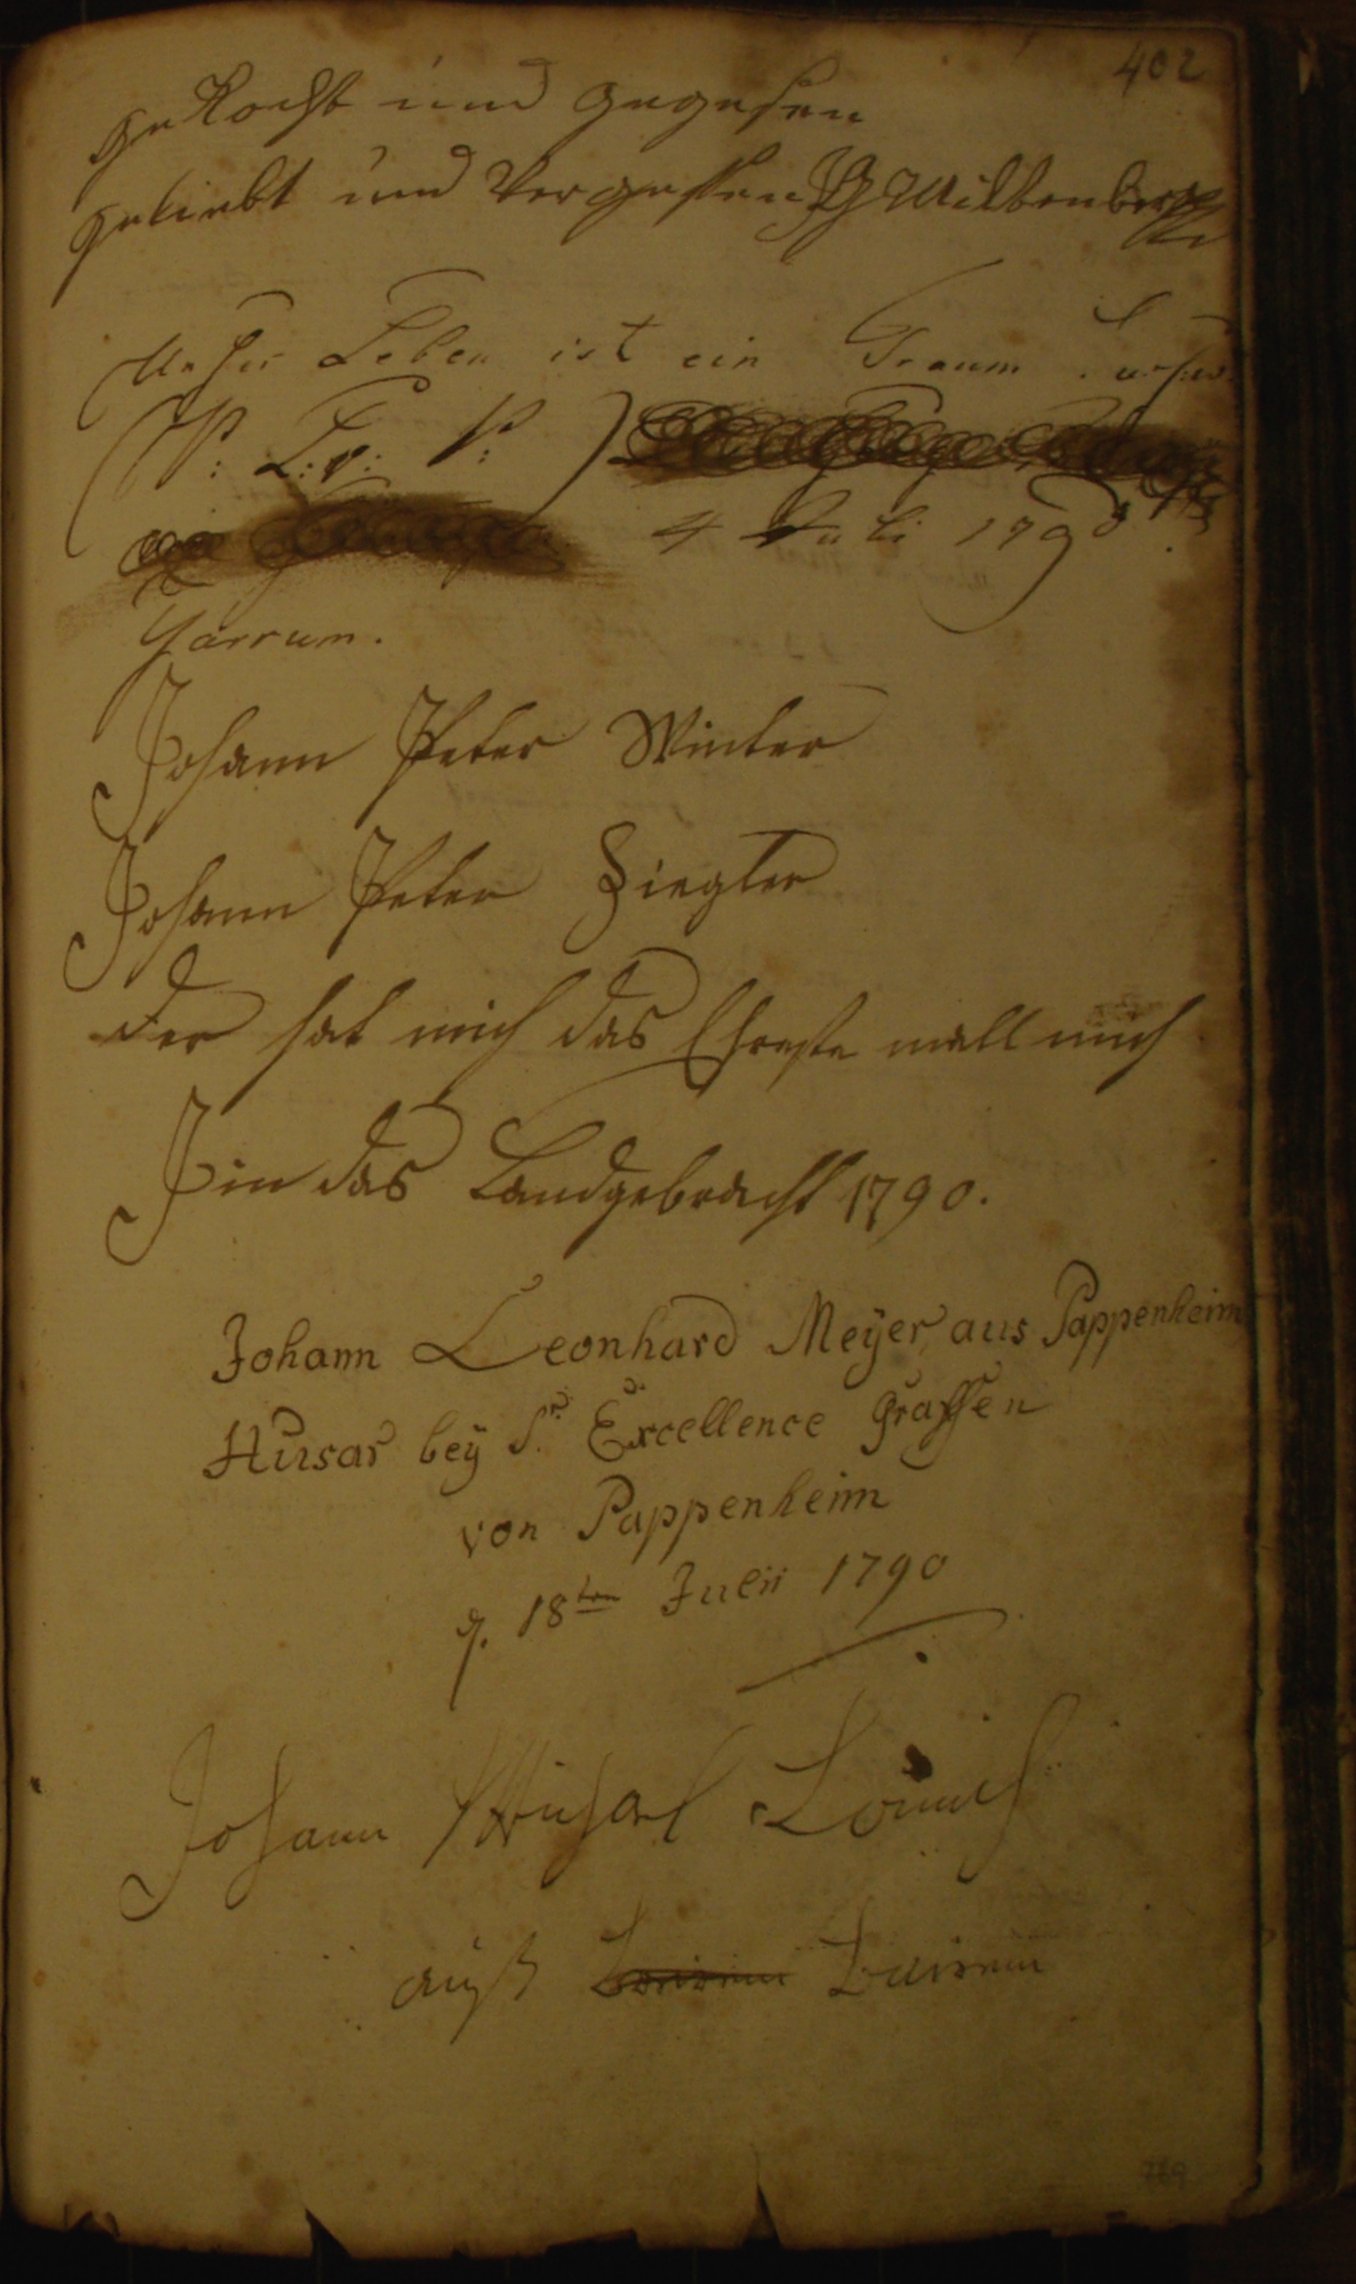 402
gekocht und gegesen
geliebt und vergessen JG Miltenberg
Unser Leben ist ein Traum. u.s.w.
4 Juli 1790
Garrum.
Johann Peter Winter
Johann Peter Ziegler
der hat mich das Ehrste mall mich
Jin das Landgebracht 1790.
Johann Leonhard Meÿer aus Pappenheim
Husar beÿ Sr. Excellence Graffen
von Pappenheim
d. 18ten Julii 1790
Johann Michael
auß
769